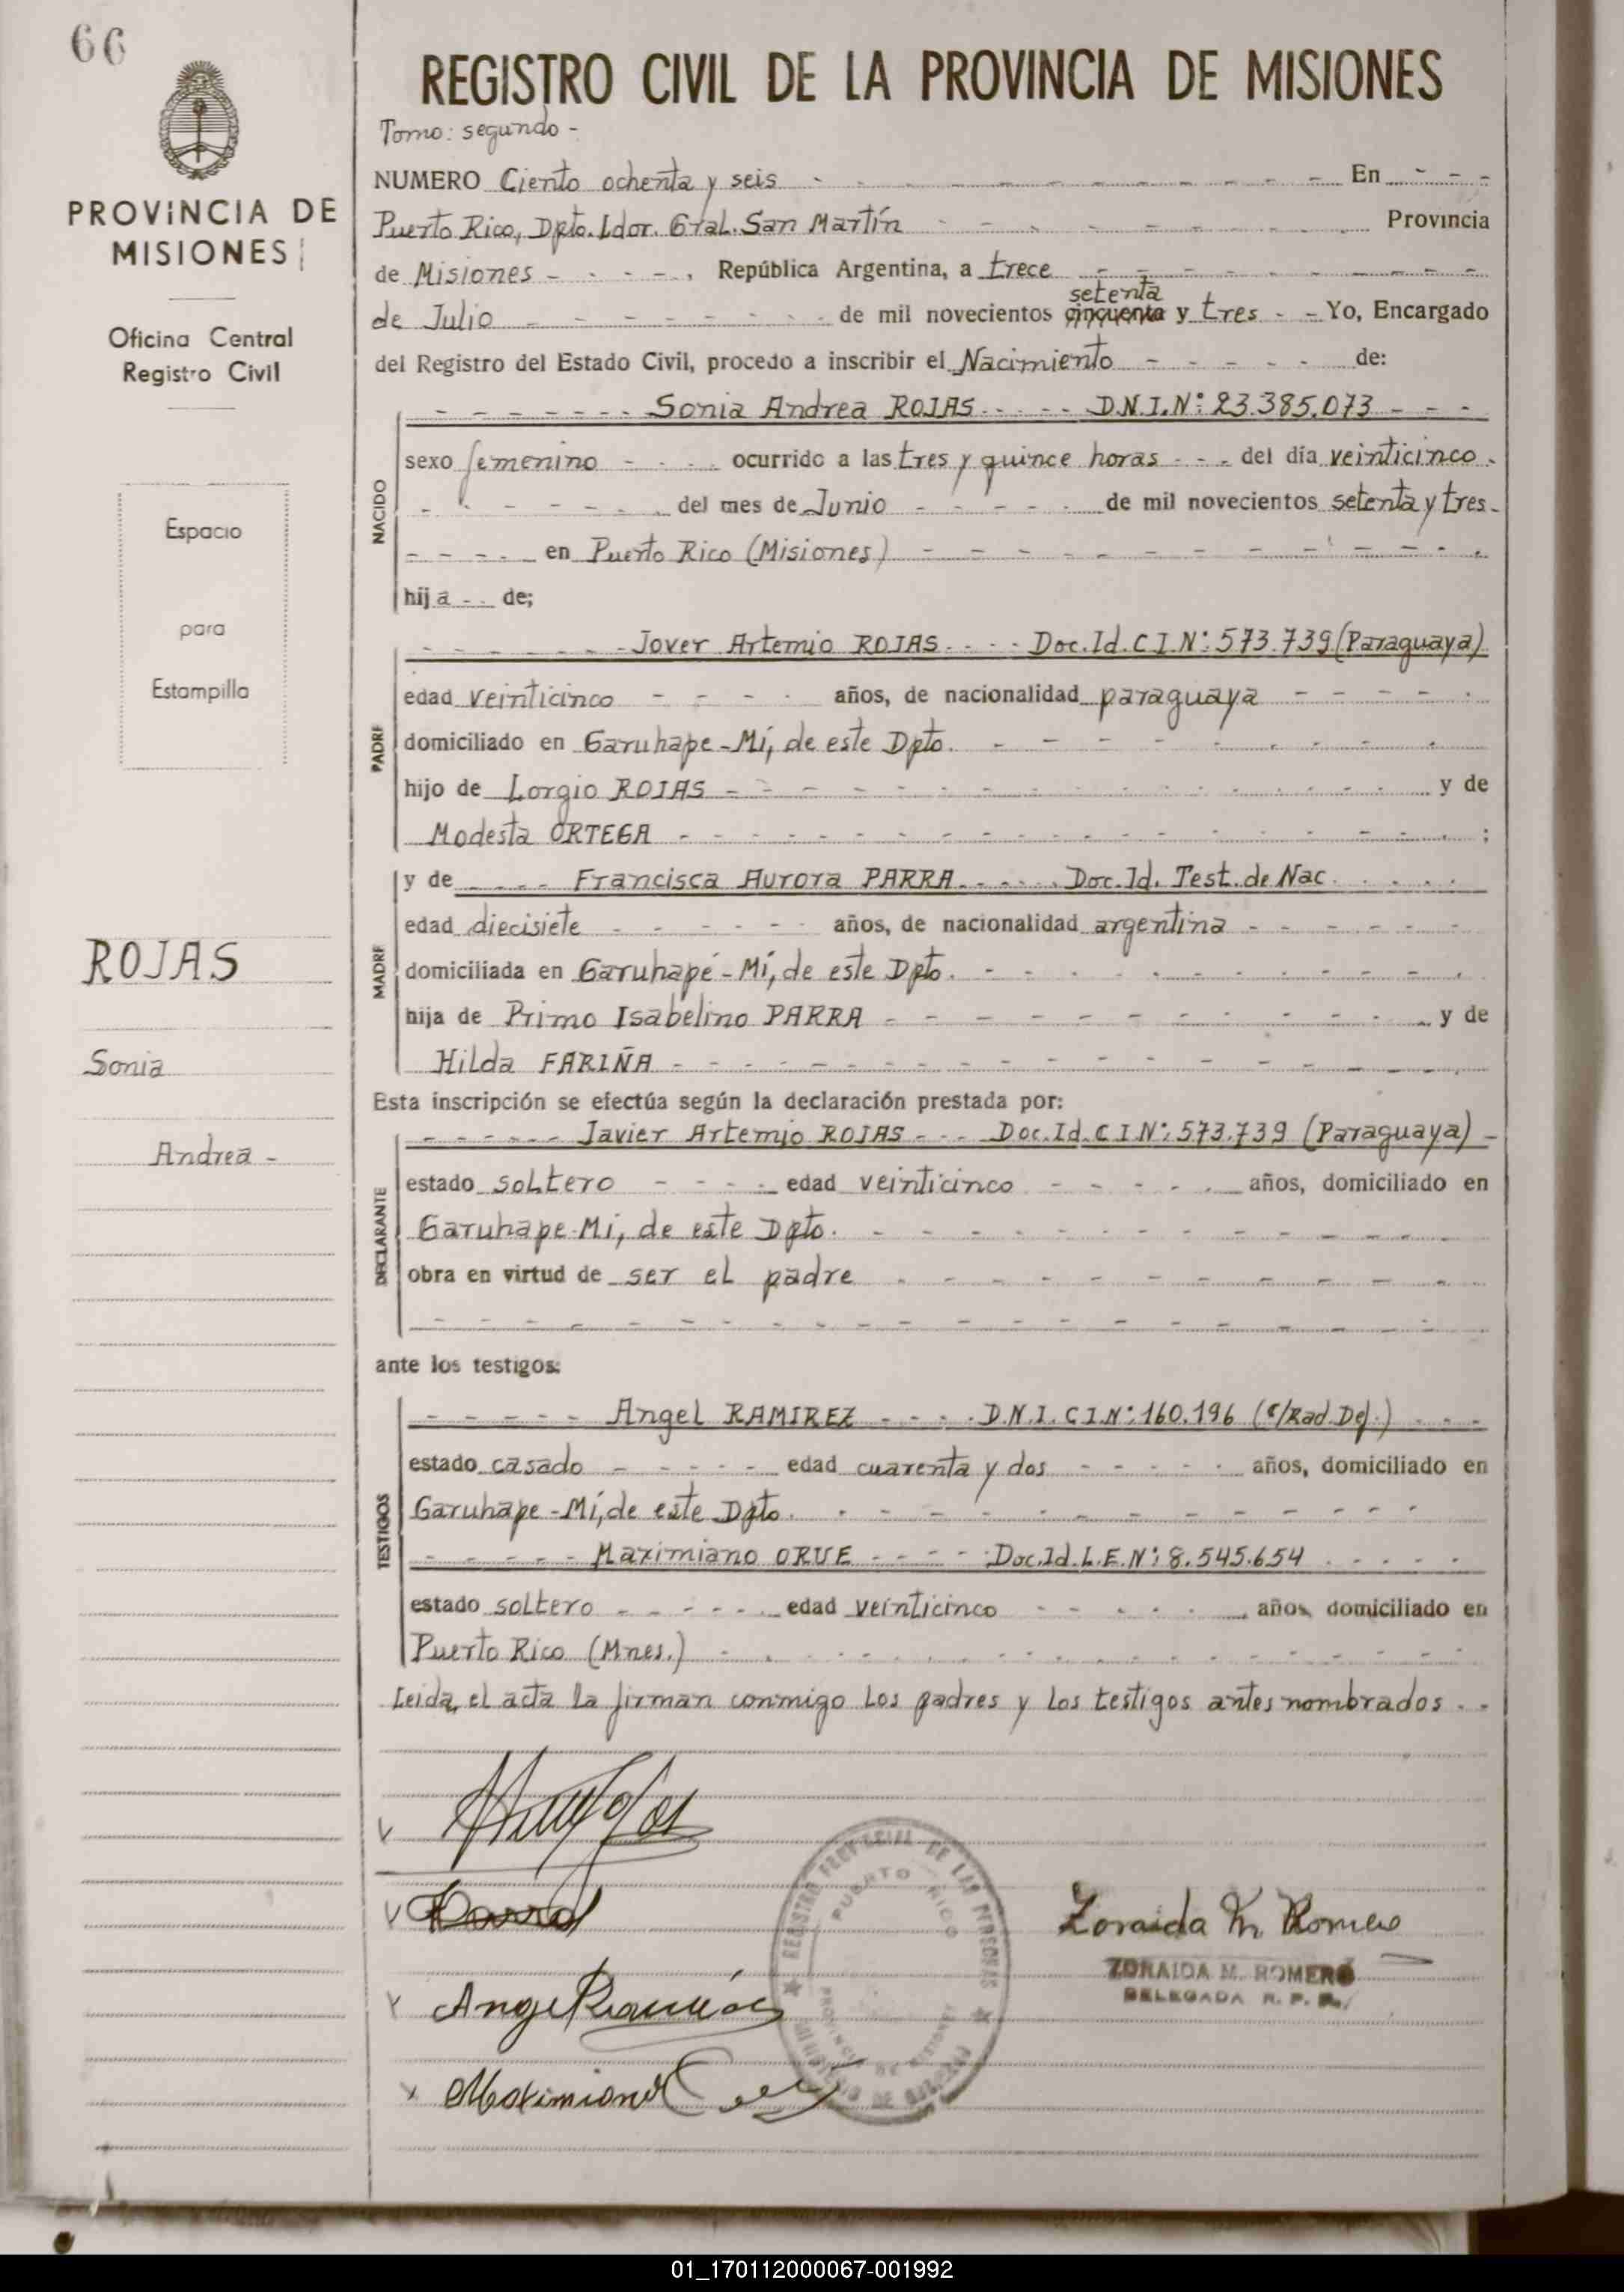 66
REGISTRO CIVIL DE LA PROVINCIA DE MISIONES
Tomo: segundo -
NUMERO Ciento ochenta y seis - - - En - - -
Puerto Rico, Dpto. Ldor. Gral. San Martín - - - Provincia
de Misiones - - - -, República Argentina, a trece - - -
setenta
de Julio - - - de mil novecientos cincuenta y tres - - Yo, Encargado
del Registro del Estado Civil, procedo a inscribir el Nacimiento - - - de:
PROVINCIA DE
MISIONES
Oficina Central
Registro Civil
Espacio
para
Estampilla
ROJAS
Sonia
Andrea -
NACIDO
- - - Sonia Andrea ROJAS - - - D.N.I.Nº 23.385.073 - - -
sexo femenino - - - ocurrido a las tres y quince horas - - - del día veinticinco -
- - - del mes de Junio - - - de mil novecientos setenta y tres -
- - - en Puerto Rico (Misiones) - - -
hija - - de;
PADRE
- - - Jover Artemio ROJAS - - - Doc. Id. C I. Nº: 573.739 (Paraguaya)
edad veinticinco - - - años, de nacionalidad paraguaya - - -
domiciliado en Garuhape-Mí, de este Dpto. - - -
hijo de Lorgio ROJAS - - - y de
Modesta ORTEGA - - - ;
MADRE
y de - - - Francisca Aurora PARRA - - - Doc. Id. Test. de Nac. - - -
edad diecisiete - - - años, de nacionalidad argentina - - -
domiciliada en Garuhapé-Mí, de este Dpto. - - -
hija de Primo Isabelino PARRA - - - y de
Hilda FARIÑA - - -
Esta inscripción se efectúa según la declaración prestada por:
DECLARANTE
- - - Javier Artemio ROJAS - - - Doc. Id. C I Nº: 573.739 (Paraguaya) -
estado soltero - - - edad veinticinco - - - años, domiciliado en
Garuhape-Mí, de este Dpto. - - -
obra en virtud de ser el padre - - -
ante los testigos:
TESTIGOS
- - - Angel RAMIREZ - - - D.N.I. C I. Nº: 160.196 (c/Rad. Def.) - - -
estado casado - - - edad cuarenta y dos - - - años, domiciliado en
Garuhape-Mí, de este Dpto. - - -
- - - Maximiano ORUE - - - Doc. Id. L.E. Nº: 8.545.654 - - -
estado soltero - - - edad veinticinco - - - años, domiciliado en
Puerto Rico (Mnes.) - - -
Leida el acta la firman conmigo los padres y los testigos antes nombrados - -
REGISTRO PROVINCIAL DE LAS PERSONAS
PUERTO RICO
PROVINCIA DE MISIONES
MINISTERIO DE GOBIERNO
Zoraida M. Romero
ZORAIDA M. ROMERO
DELEGADA R. P. P.
Angel Ramirez
Maximiano
01_170112000067-001992